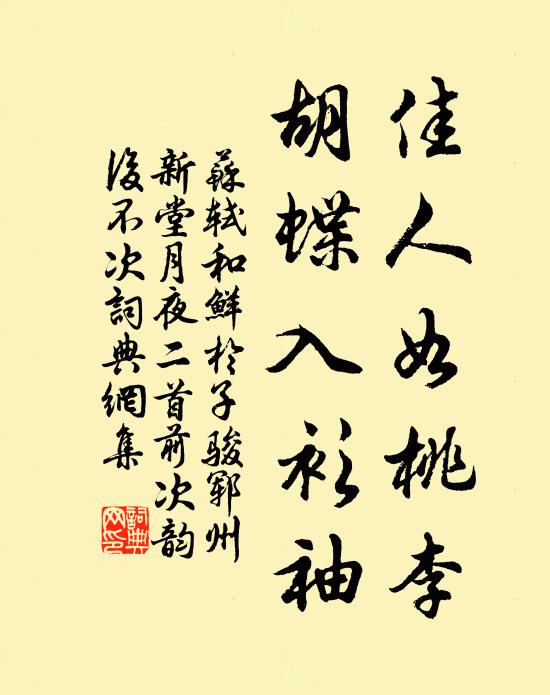 佳人如桃李
胡蝶入衫袖
蘇軾和鮮於子駿鄆州
新堂月夜二首前次韵
後不次詞典網集
詞典
网印